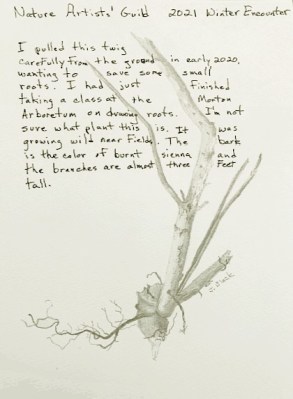 Nature Artists' Guild 2021 Winter Encounter
I pulled this twig
carefully from the ground in early 2020,
wanting to save some small
roots. I had just finished
taking a class at the Morton
Arboretum on drawing roots. I'm not
sure what plant this is. It was
growing wild near Fields. The bark
is the color of burnt sienna and
the branches are almost three feet
tall.